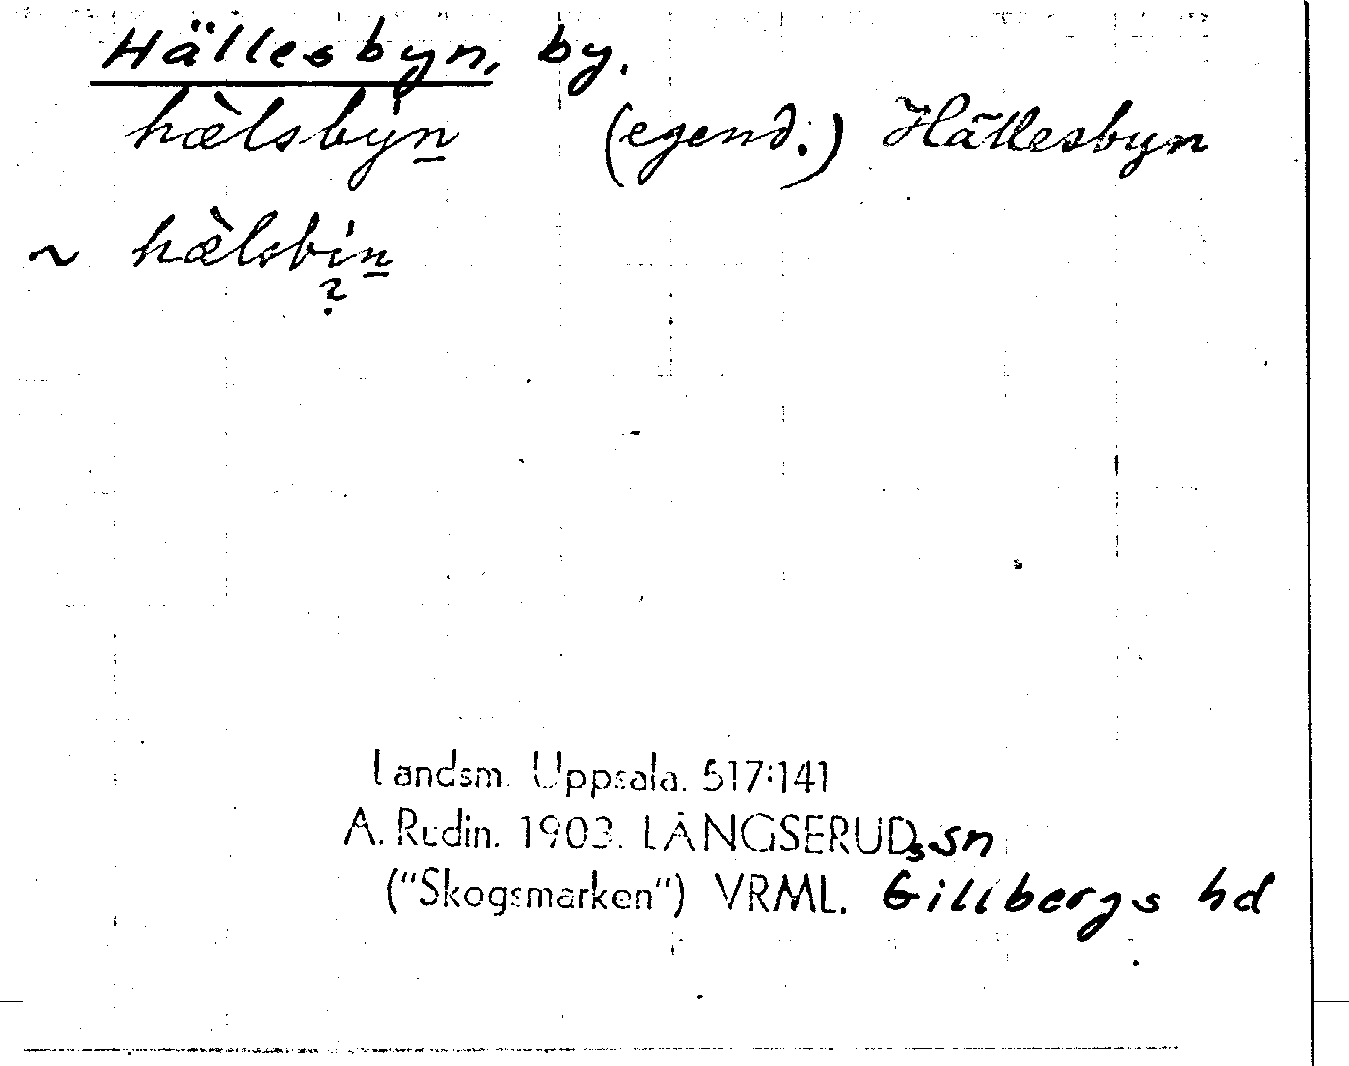 Hällesbyn, by.
hæ̀lsbýn (egend.) Hällesbyn
~ hæ̀lsbin
?
Landsm. Uppsala. 517:141
A. Rudin. 1903. LÅNGSERUDs sn
("Skogsmarken") VRML. Gillbergs hd